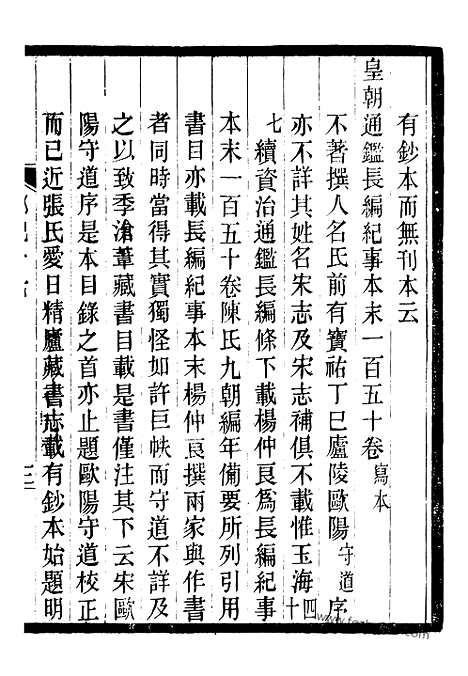 有鈔本而無刊本云
皇朝通鑑長編紀事本末一百五十卷寫本
不著撰人名氏前有寶祐丁巳廬陵歐陽守道序
亦不詳其姓名宋志及宋志補俱不載惟玉海四十
七續資治通鑑長編條下載楊仲良爲長編紀事
本末一百五十卷陳氏九朝編年備要所列引用
書目亦載長編紀事本末楊仲良撰兩家與作書
者同時當得其實獨怪如許巨帙而守道不詳及
之以致季滄葦藏書目載是書僅注其下云宋歐
陽守道序是本目錄之首亦止題歐陽守道校正
而已近張氏愛日精廬藏書志載有鈔本始題明
三